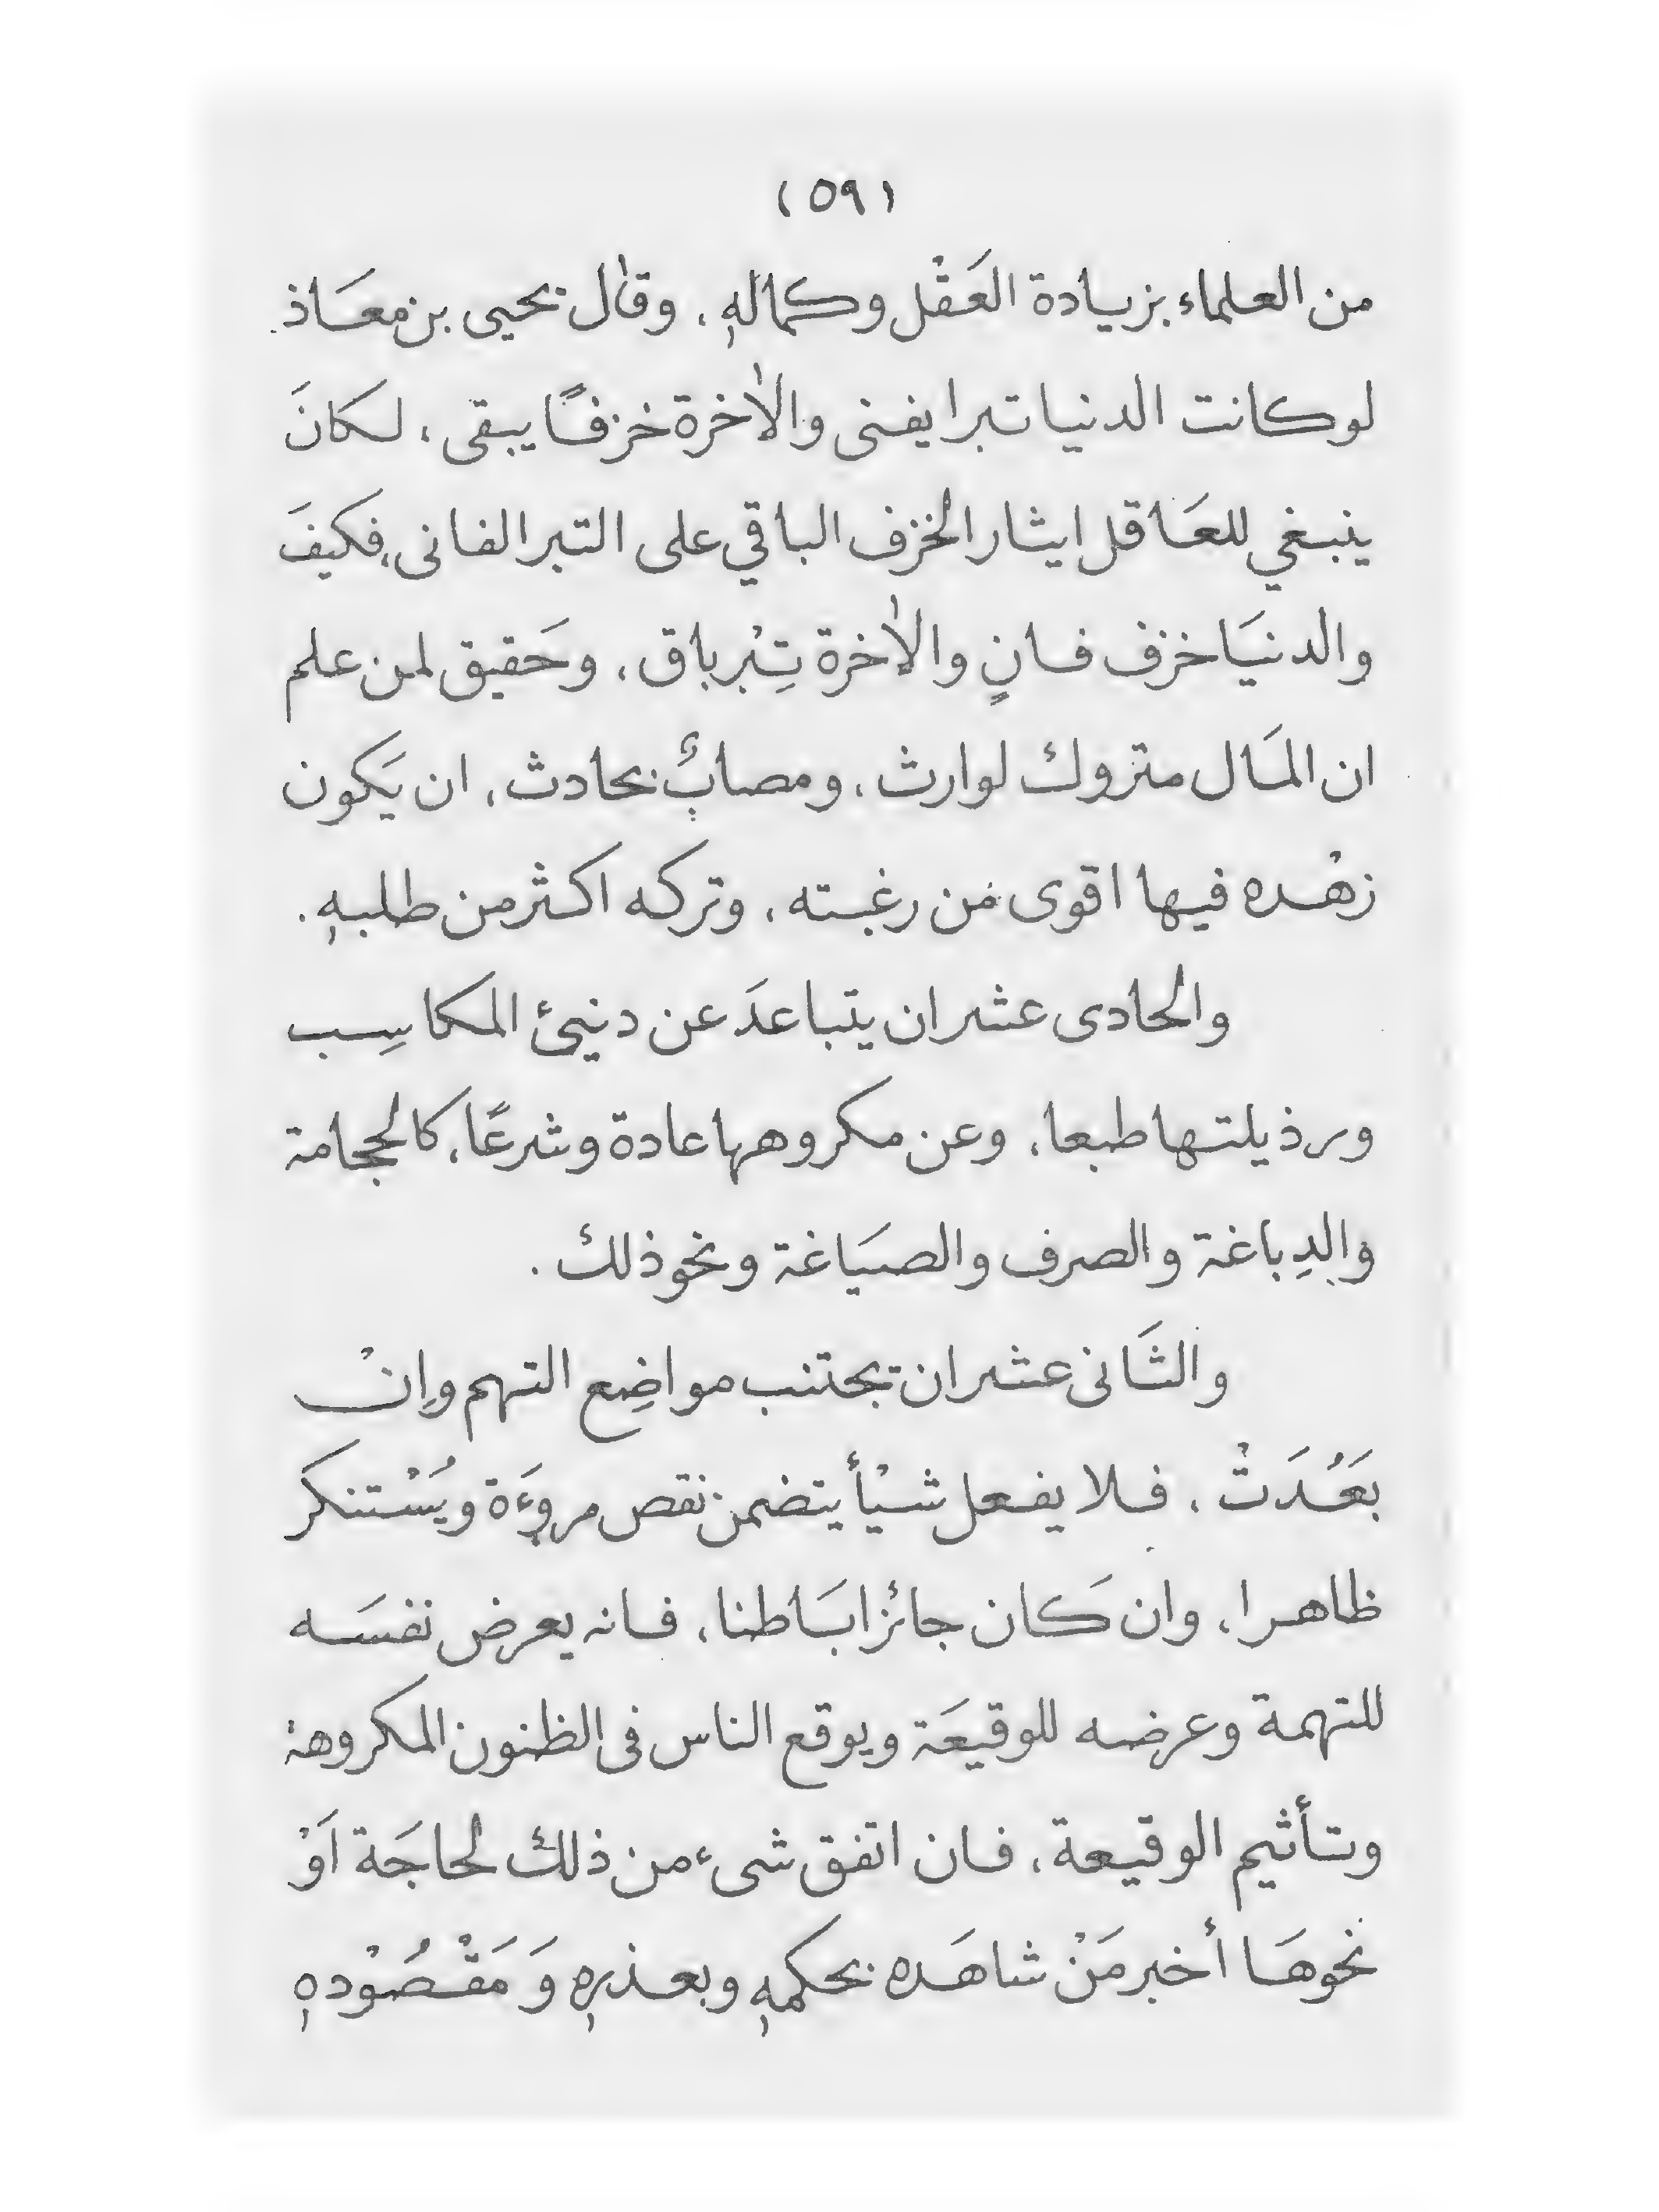 (٥٩)
من العلماء بزيادة العَقْل وكمالهٖ، وقال يحيى بن معَاذ
لو كانت الدنيا تبرا يفنى والاٰخرة خزفًا يبقى، لكانَ
ينبغي للعَاقل ايثار الخزف الباقي على التبر الفانى، فكيفَ
والدنيَا خزف فانٍ والاٰخرة تِبْر باق، وحَقيق لمن علم
ان المَال متروك لوارث، ومصابٌ بحادث، ان يَكون
زهْده فيها اقوى من رغبته، وتركه اكثر من طلبهٖ.
والحادى عشر ان يتباعدَ عن دنيئ المكاسِب
ورذيلتها طبعا، وعن مكروهها عادة وشرعًا، كالحجامة
والدِباغة والصرف والصيَاغة ونحو ذلك.
والثَانى عشر ان يجتنب مواضِع التهم وإِنْ
بَعُدَتْ، فلا يفعل شيْأ يتضمن نقص مروءَة ويُسْتنكر
ظاهرا، وان كَان جائزا بَاطنا، فانه يعرض نفسَه
للتهمة وعرضه للوقيعَة ويوقع الناس فى الظنون المكروهة
وتأثيم الوقيعة، فان اتفق شىء من ذلك لحاجَة اَوْ
نحوهَا أخبر مَنْ شاهَده بحكمهٖ وبعذرهٖ وَمَقْصُوْدهٖ